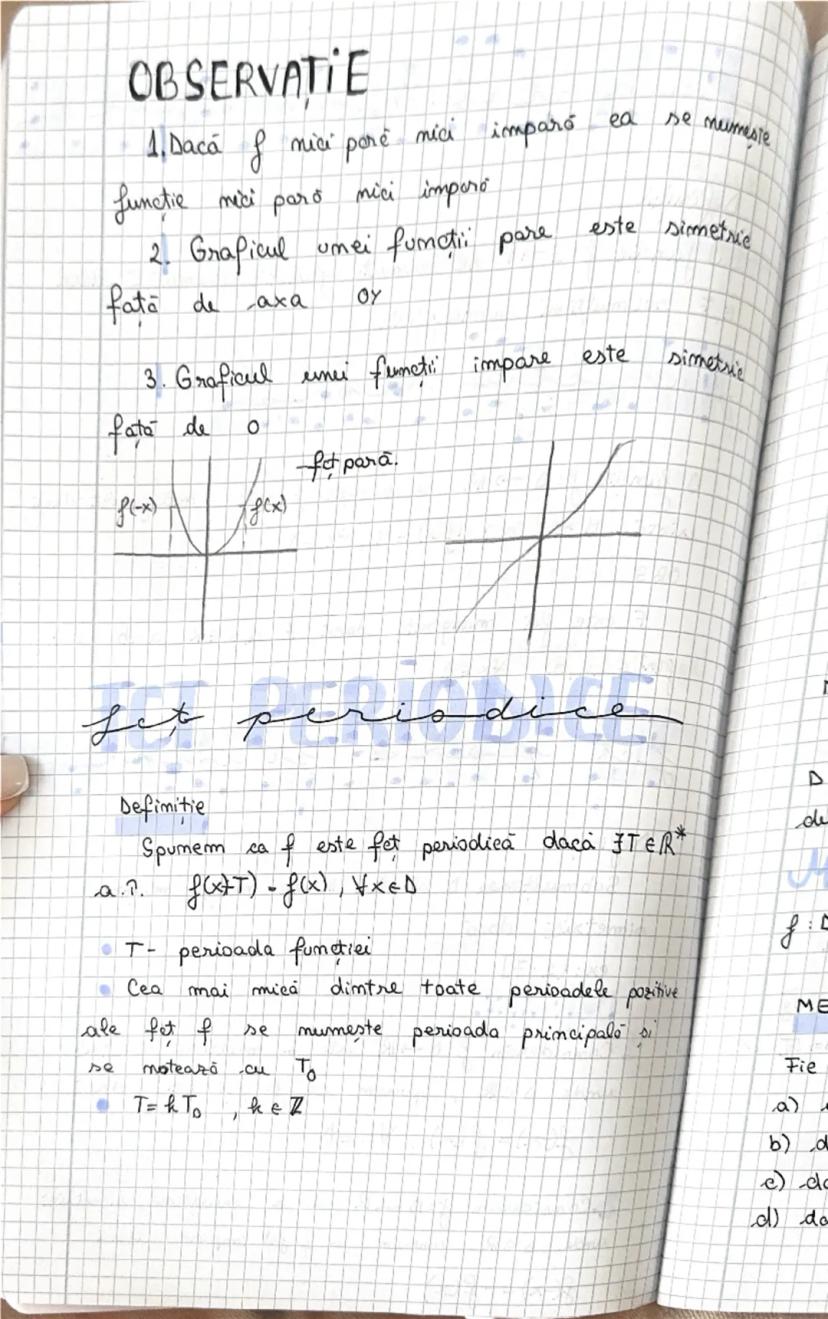 OBSERVAȚIE
1. Dacă f nici pară nici impară ea se numește
funcție nici pară nici impară
2. Graficul unei funcții pare este simetric
față de axa OY
3. Graficul unei funcții impare este simetric
față de O
fcț pară.
f(-x) f(x)
FCT PERIODICE
fcț periodice
Definiție
Spunem ca f este fcț periodică dacă ∃T∈ℝ*
a.î. f(x+T) = f(x), ∀x∈D
• T- perioada funcției
• Cea mai mică dintre toate perioadele pozitive
ale fcț f se numește perioada principală și
se notează cu T₀
• T=kT₀ , k∈ℤ
D
de
f : D
ME
Fie
a)
b) d
c) da
d) da